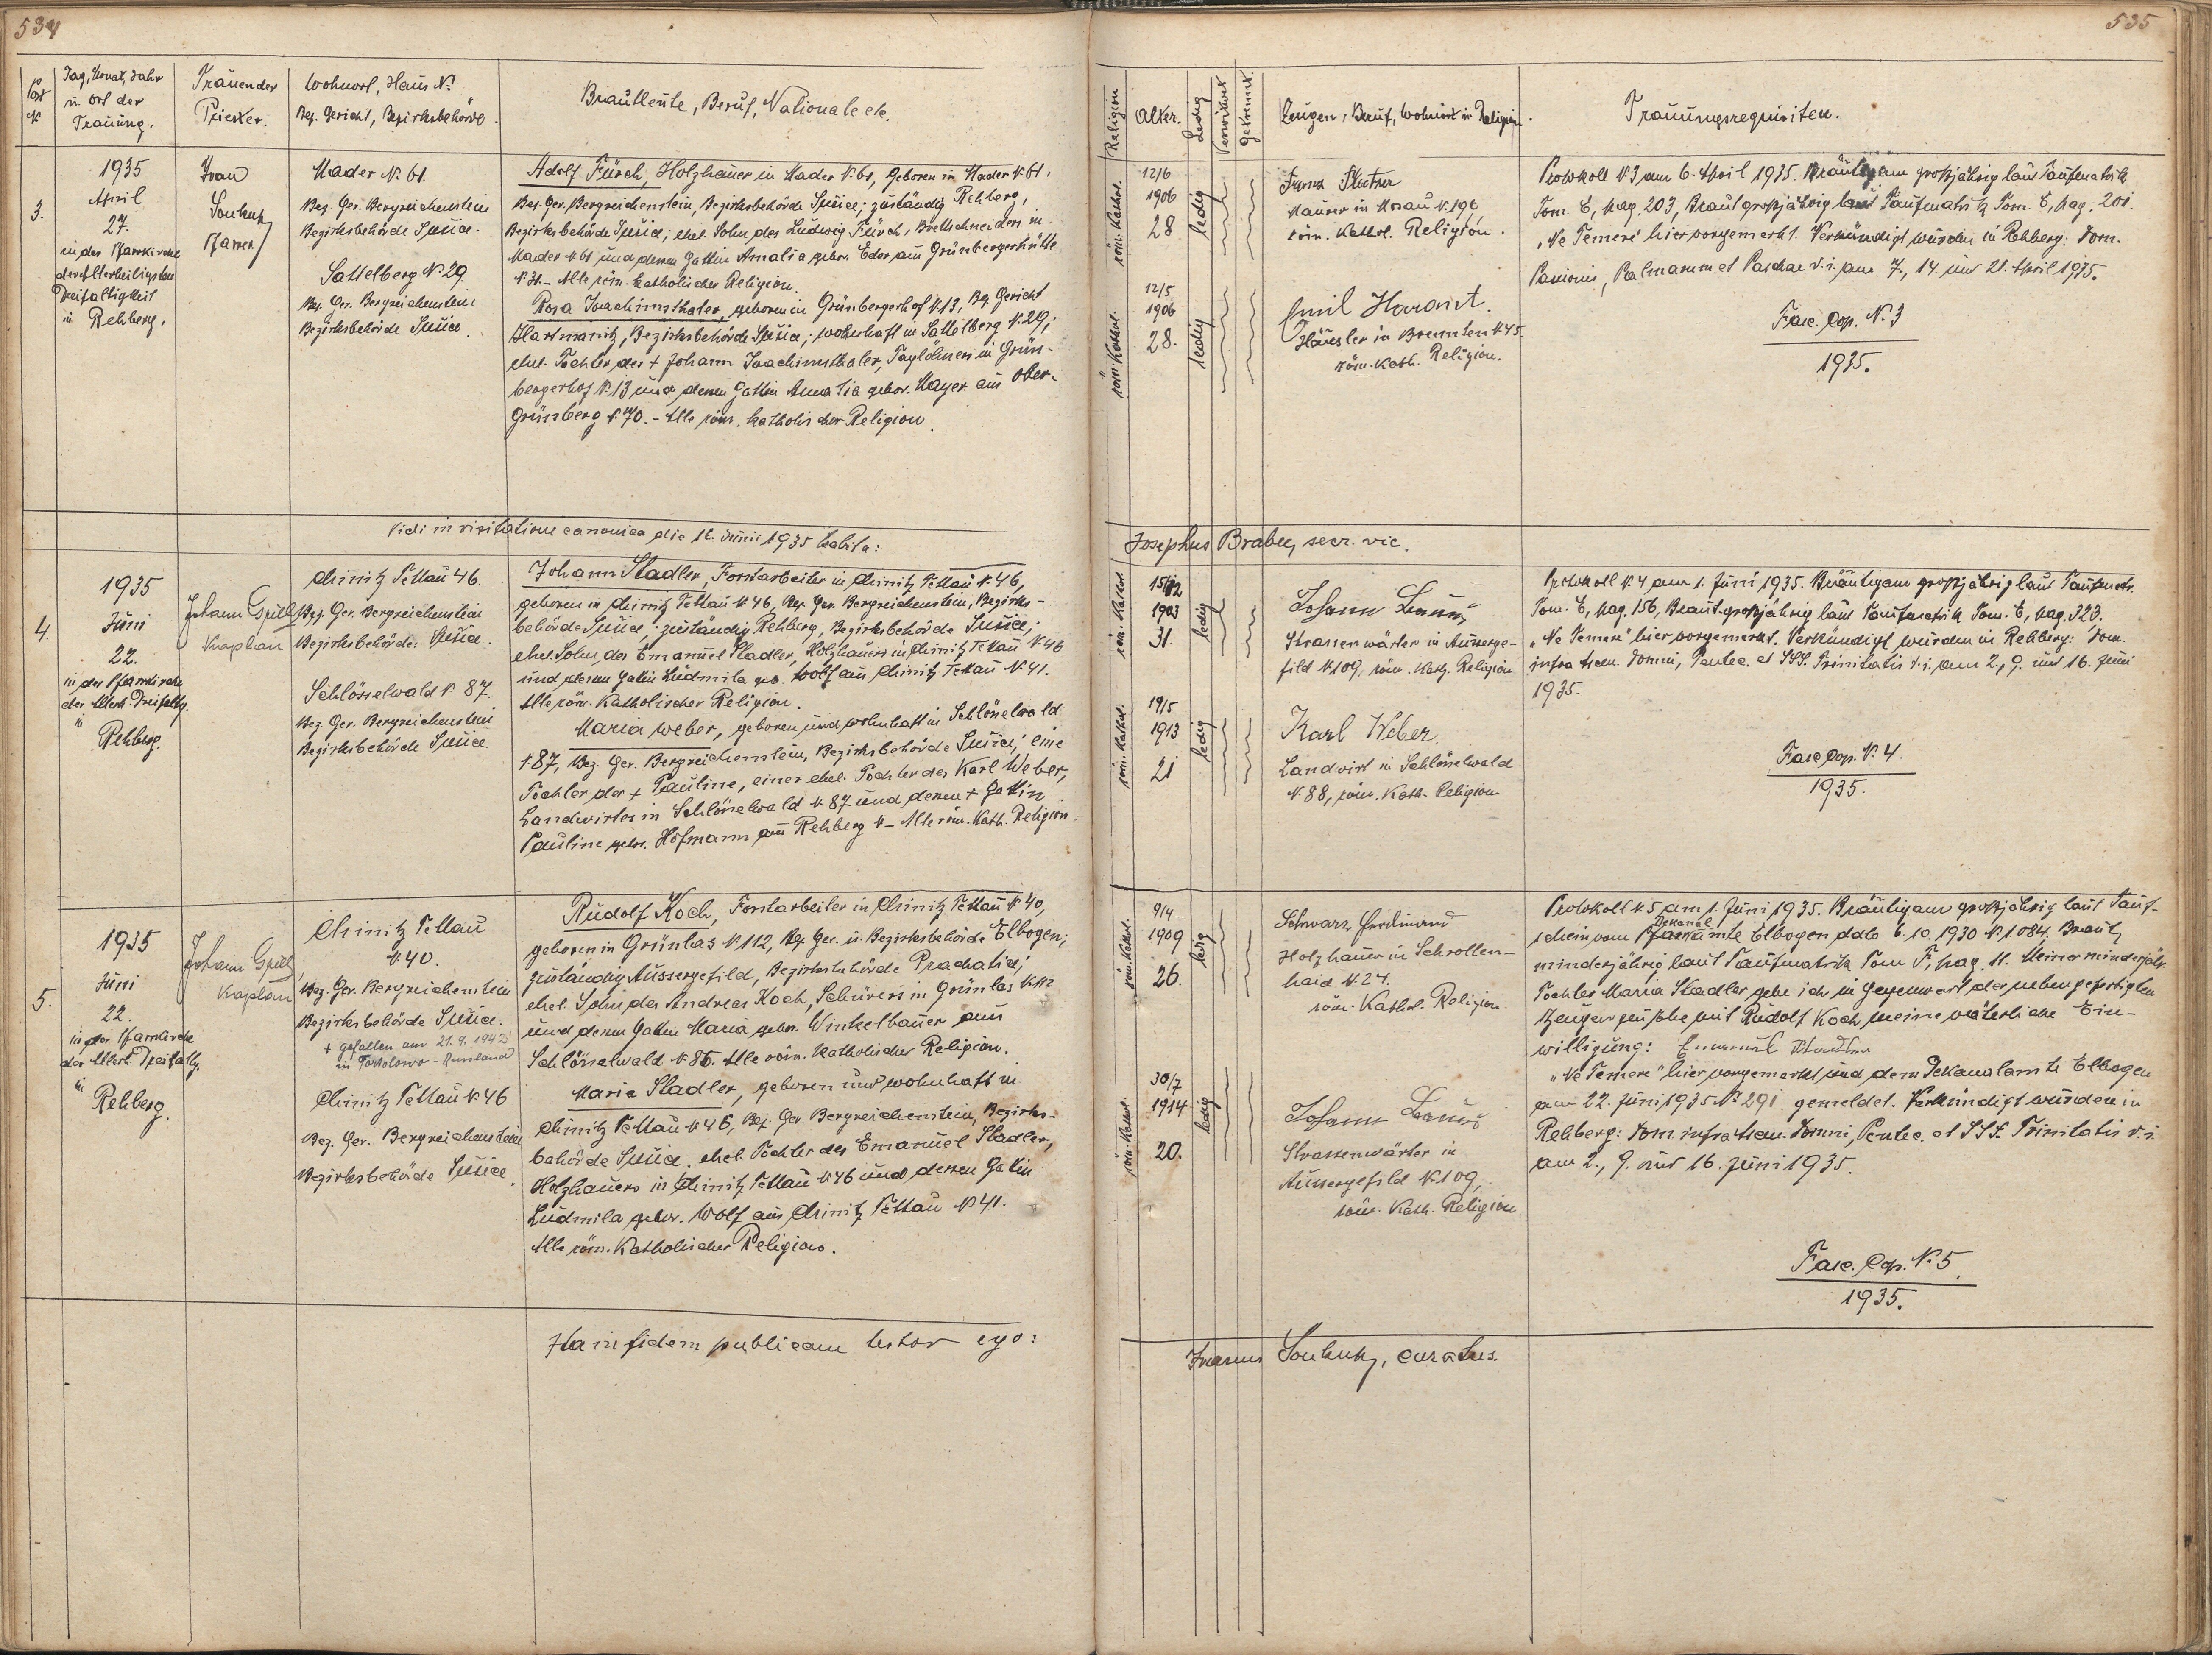 534
Post
№
Tag, Monat, Jahr
u. Ort der
Trauung.
Trauender
Priester.
Wohnort, Haus №
Bez. Gericht, Bezirksbehörde.
Brautleute, Beruf, Nationale etc.
3.
1935
April
27.
in der Pfarrkirche
der Allerheiligsten
Dreifaltigkeit
in Rehberg.
Ivan
Pfarrer
Mader N. 61.
Bez. Ger. Bergreichenstein
Bezirksbehörde Sušice.
Sattelberg N. 29
Bez. Ger. Bergreichenstein
Bezirksbehörde Sušice.
Adolf Fürch, Holzhauer in Mader N. 61, geboren in Mader N. 61,
Bez. Ger. Bergreichenstein, Bezirksbehörde Sušice; zuständig Rehberg,
Bezirksbehörde Sušice; ehel. Sohn des Ludwig Fürch, Brettschneiders in
Mader N. 61 und dessen Gattin Amalia gebor. Eder aus Grünbergerhütte
N. 31. – Alle röm. katholischer Religion.
Rosa Joachimsthaler, geboren in Grünbergerhof N. 13, Bez. Gericht
Hartmanitz, Bezirksbehörde Sušice; wohnhaft in Sattelberg N. 29;
ehel. Tochter des + Johann Joachimsthaler, Taglöhners in Grün-
bergerhof N. 13 und dessen Gattin Amalia gebor. Mayer aus Ober-
Grünberg N. 70. – Alle röm. katholischer Religion.
Vidi in visitatione canonica die 12. Junii 1935 habita:
4.
1935
Juni
22.
in der Pfarrkirche
der Allerh. Dreifaltg.
in
Rehberg.
Johann Spill
Kaplan
Chinitz Tettau 46
Bez. Ger. Bergreichenstein
Bezirksbehörde: Sušice.
Schlösselwald N. 87.
Bez. Ger. Bergreichenstein
Bezirksbehörde Sušice.
Johann Stadler, Forstarbeiter in Chinitz Tettau N. 46,
geboren in Chinitz Tettau N. 46, Bez. Ger. Bergreichenstein, Bezirks-
behörde Sušice; zuständig Rehberg, Bezirksbehörde Sušice;
ehel. Sohn des Emanuel Stadler, Holzhauers in Chinitz Tettau N. 46
und dessen Gattin Ludmila geb. Wolf aus Chinitz Tettau N. 41.
Alle röm. Katholischer Religion.
Maria Weber, geboren und wohnhaft in Schlösselwald
N. 87, Bez. Ger. Bergreichenstein, Bezirksbehörde Sušice; eine
Tochter der + Pauline, einer ehel. Tochter des Karl Weber,
Landwirtes in Schlösselwald N. 87 und dessen + Gattin
Pauline gebor. Hofmann aus Rehberg N – Alle röm. Kath. Religion.
5.
1935
Juni
22.
in der Pfarrkirche
der Allerh. Dreifaltg.
in
Rehberg.
Johann Spill
Kaplan
Chinitz Tettau
N. 40.
Bez. Ger. Bergreichenstein
Bezirksbehörde Sušice.
+ gefallen am 21.9.1942
in - Russland
Chinitz Tettau N. 46
Bez. Ger. Bergreichenstein
Bezirksbehörde Sušice.
Rudolf Koch, Forstarbeiter in Chinitz Tettau N. 40,
geboren in Grünlas N. 112, Bez. Ger. u. Bezirksbehörde Elbogen;
zuständig Aussergefild, Bezirksbehörde Prachatice;
ehel. Sohn des Andreas Koch, Schürers in Grünlas N. 112
und dessen Gattin Maria gebor. Winkelbauer aus
Schlösselwald N. 86. Alle röm. Katholischer Religion.
Maria Stadler, geboren und wohnhaft in
Chinitz Tettau N. 46, Bez. Ger. Bergreichenstein, Bezirks-
behörde Sušice. ehel. Tochter des Emanuel Stadler,
Holzhauers in Chinitz Tettau N. 46 und dessen Gattin
Ludmila gebor. Wolf aus Chinitz Tettau N. 41.
Alle röm. Katholischer Religion.
Ita in fidem publicam testor ego:
535
Religion
Alter.
Ledig
Verwitwet
Getrennt.
Zeugen, Beruf, Wohnort u. Religion.
Trauungsrequisiten.
röm. Kathol.
12/6
1906
28
ledig
Franz
Maurer in Mosau N. 196
röm. Kathol. Religion.
röm. Kathol.
12/5
1906
28.
ledig
Emil
Häusler in N. 45.
röm. Kath. Religion.
Protokoll N. 3 am 6. April 1935. Bräutigam großjährig laut Taufmatrik
Tom. E, pag. 203, Braut großjährig laut Taufmatrik Tom. E, pag. 201.
„Ne Temere" hier vorgemerkt. Verkündigt wurden in Rehberg: Dom.
Passionis, Palmarum et Paschae d. i. am 7., 14. und 21. April 1935.
Fasc. Cop. N. 3
1935.
Josephus Brabec, secr. vic.
röm. Kathol.
15/12
1903
31.
ledig
Johann
Strassenwärter in Ausserge-
fild N. 109, röm. Kath. Religion
röm. Kathol.
19/5
1913
21
ledig
Karl Weber.
Landwirt in Schlösselwald
N. 88, röm. Kath. Religion
Protokoll N. 4 am 1. Juni 1935. Bräutigam großjährig laut Taufmatr.
Tom. E, pag. 156, Braut großjährig laut Taufmatrik Tom. E, pag. 323.
„Ne Temere" hier vorgemerkt. Verkündigt wurden in Rehberg: Dom.
infra Ascen. Domini, Pentec. et SSS. Trinitatis d. i. am 2., 9. und 16. Juni
1935.
Fasc. Cop. N. 4.
1935.
röm. Kathol.
9/4
1909
26.
ledig
Schwarz Ferdinand
Holzhauer in Schrollen-
haid N. 24.
röm. Kathol. Religion
röm. Kathol.
30/7
1914
20.
ledig
Johann
Strassenwärter in
Aussergefild N. 109,
röm. Kath. Religion
Protokoll N. 5 am 1. Juni 1935. Bräutigam großjährig laut Tauf-
Dekanal
schein vom Pfarramte Elbogen ddto 6.10.1930 N. 1.084. Braut
minderjährig laut Taufmatrik Tom. F, pag. 11. Meiner minderjähr.
Tochter Maria Stadler gebe ich in Gegenwart der nebengefertigten
Zeugen zur Ehe mit Rudolf Koch meine väterliche Ein-
willigung: Emanuel Stadler
„Ne Temere" hier vorgemerkt und dem Dekanalamte Elbogen
am 22. Juni 1935 N. 291 gemeldet. Verkündigt wurden in
Rehberg: Dom. infra Ascen. Domini, Pentec. et SSS. Trinitatis d. i.
am 2., 9. und 16. Juni 1935.
Fasc. Cop. N. 5.
1935.
curatus.